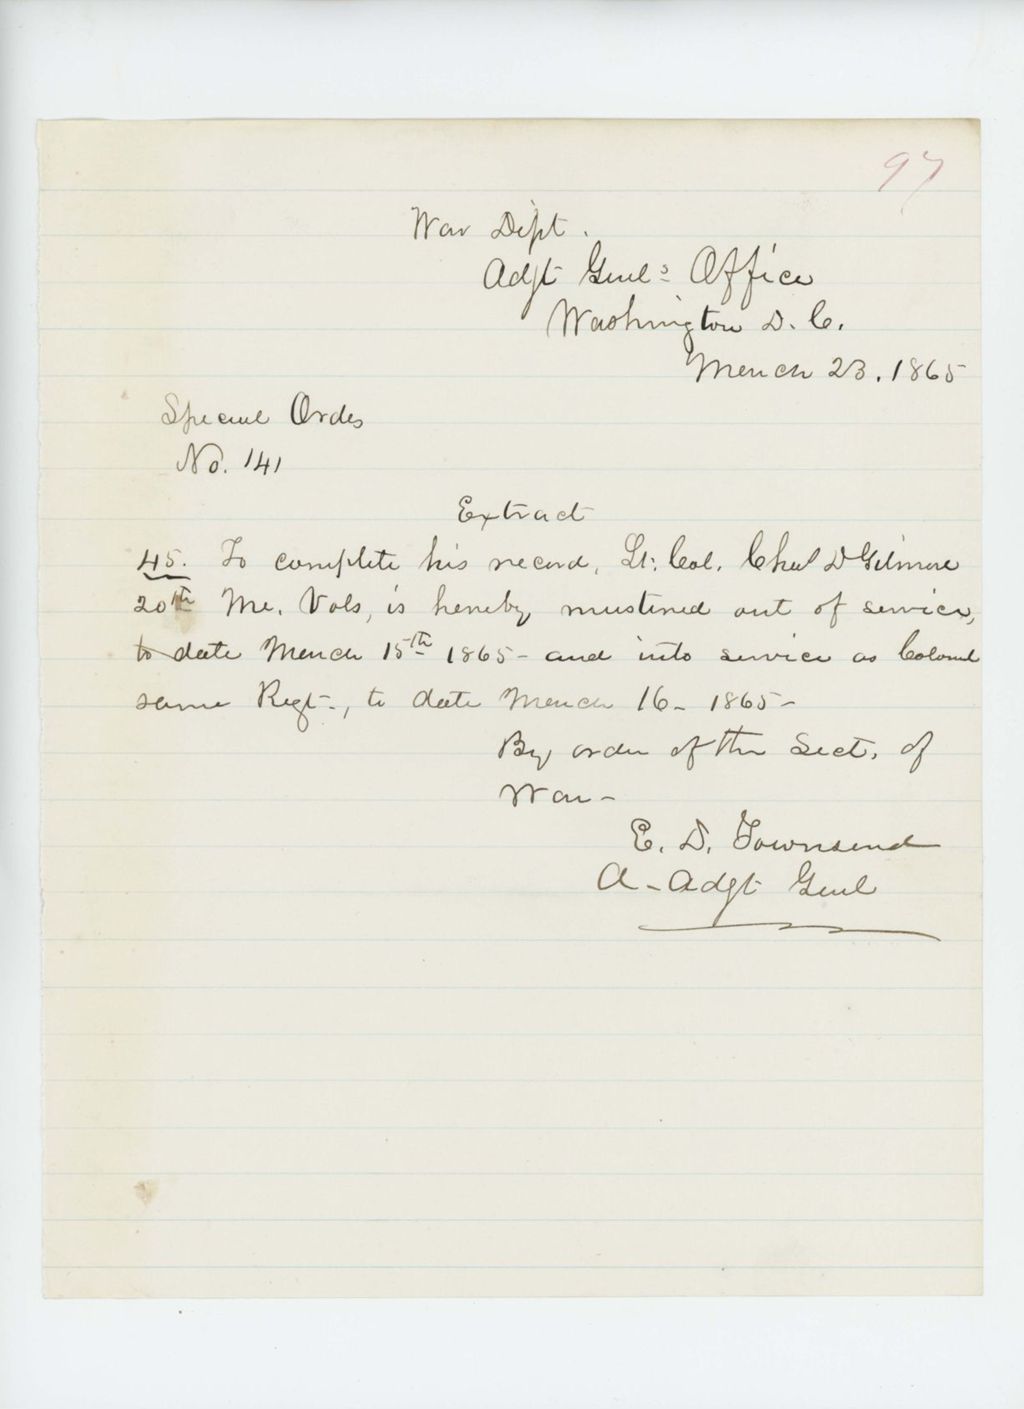 97
War Dept.
Adjt Genl's Office
Washington D. C.
March 23. 1865
Special Order
No. 141
Extract
45. To complete his record, Lt. Col. Chas D Gilmore
20th Me. Vols, is hereby mustered out of service,
to date March 15th 1865 - and into service as Colonel
same Regt-, to date March 16 - 1865 -
By order of the Sect. of
War -
E. D. Townsend
A - Adgt Genl